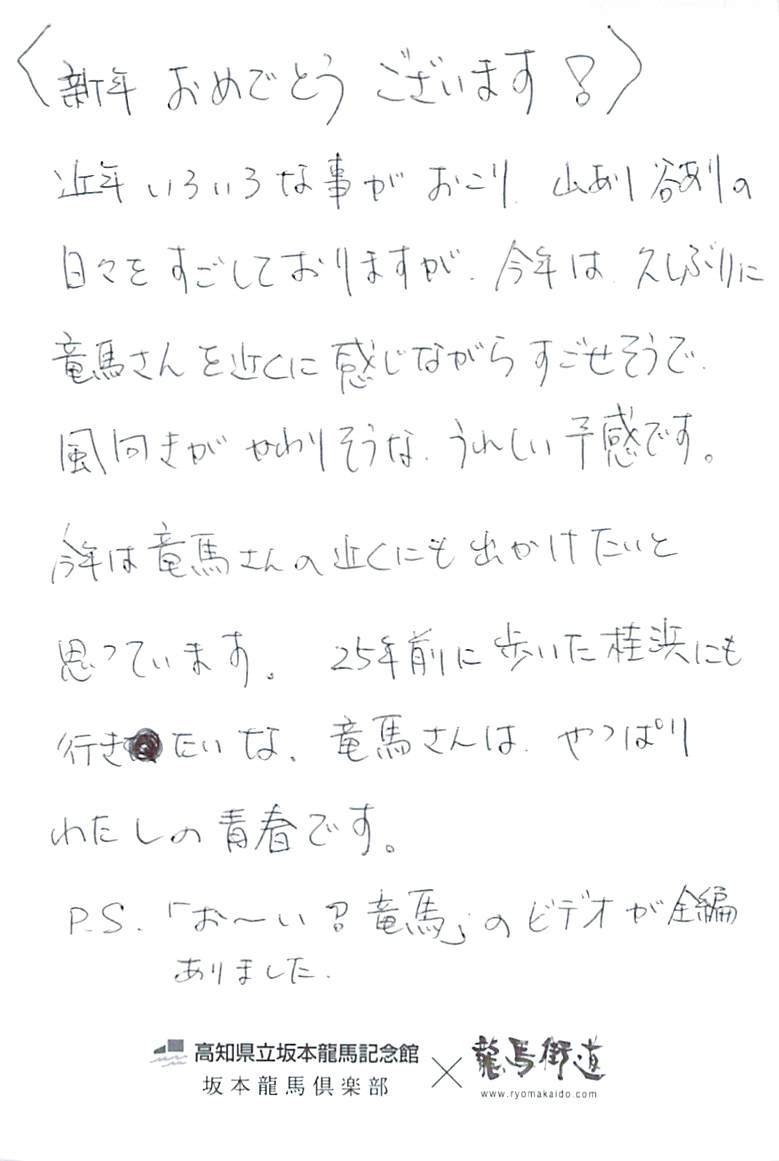 〈新年 おめでとう ございます！〉
近年 いろいろな事が おこり、山あり谷ありの
日々を すごしておりますが、今年は、久しぶりに
竜馬さんを近くに感じながら すごせそうで、
風向きが かわりそうな、うれしい予感です。
今年は竜馬さんの近くにも出かけたいと
思っています。 25年前に歩いた桂浜にも
行きたいな。竜馬さんは、やっぱり
わたしの青春です。
P.S.「お〜い！竜馬」のビデオが全編
ありました。
高知県立坂本龍馬記念館
坂本龍馬倶楽部
×
龍馬街道
www.ryomakaido.com